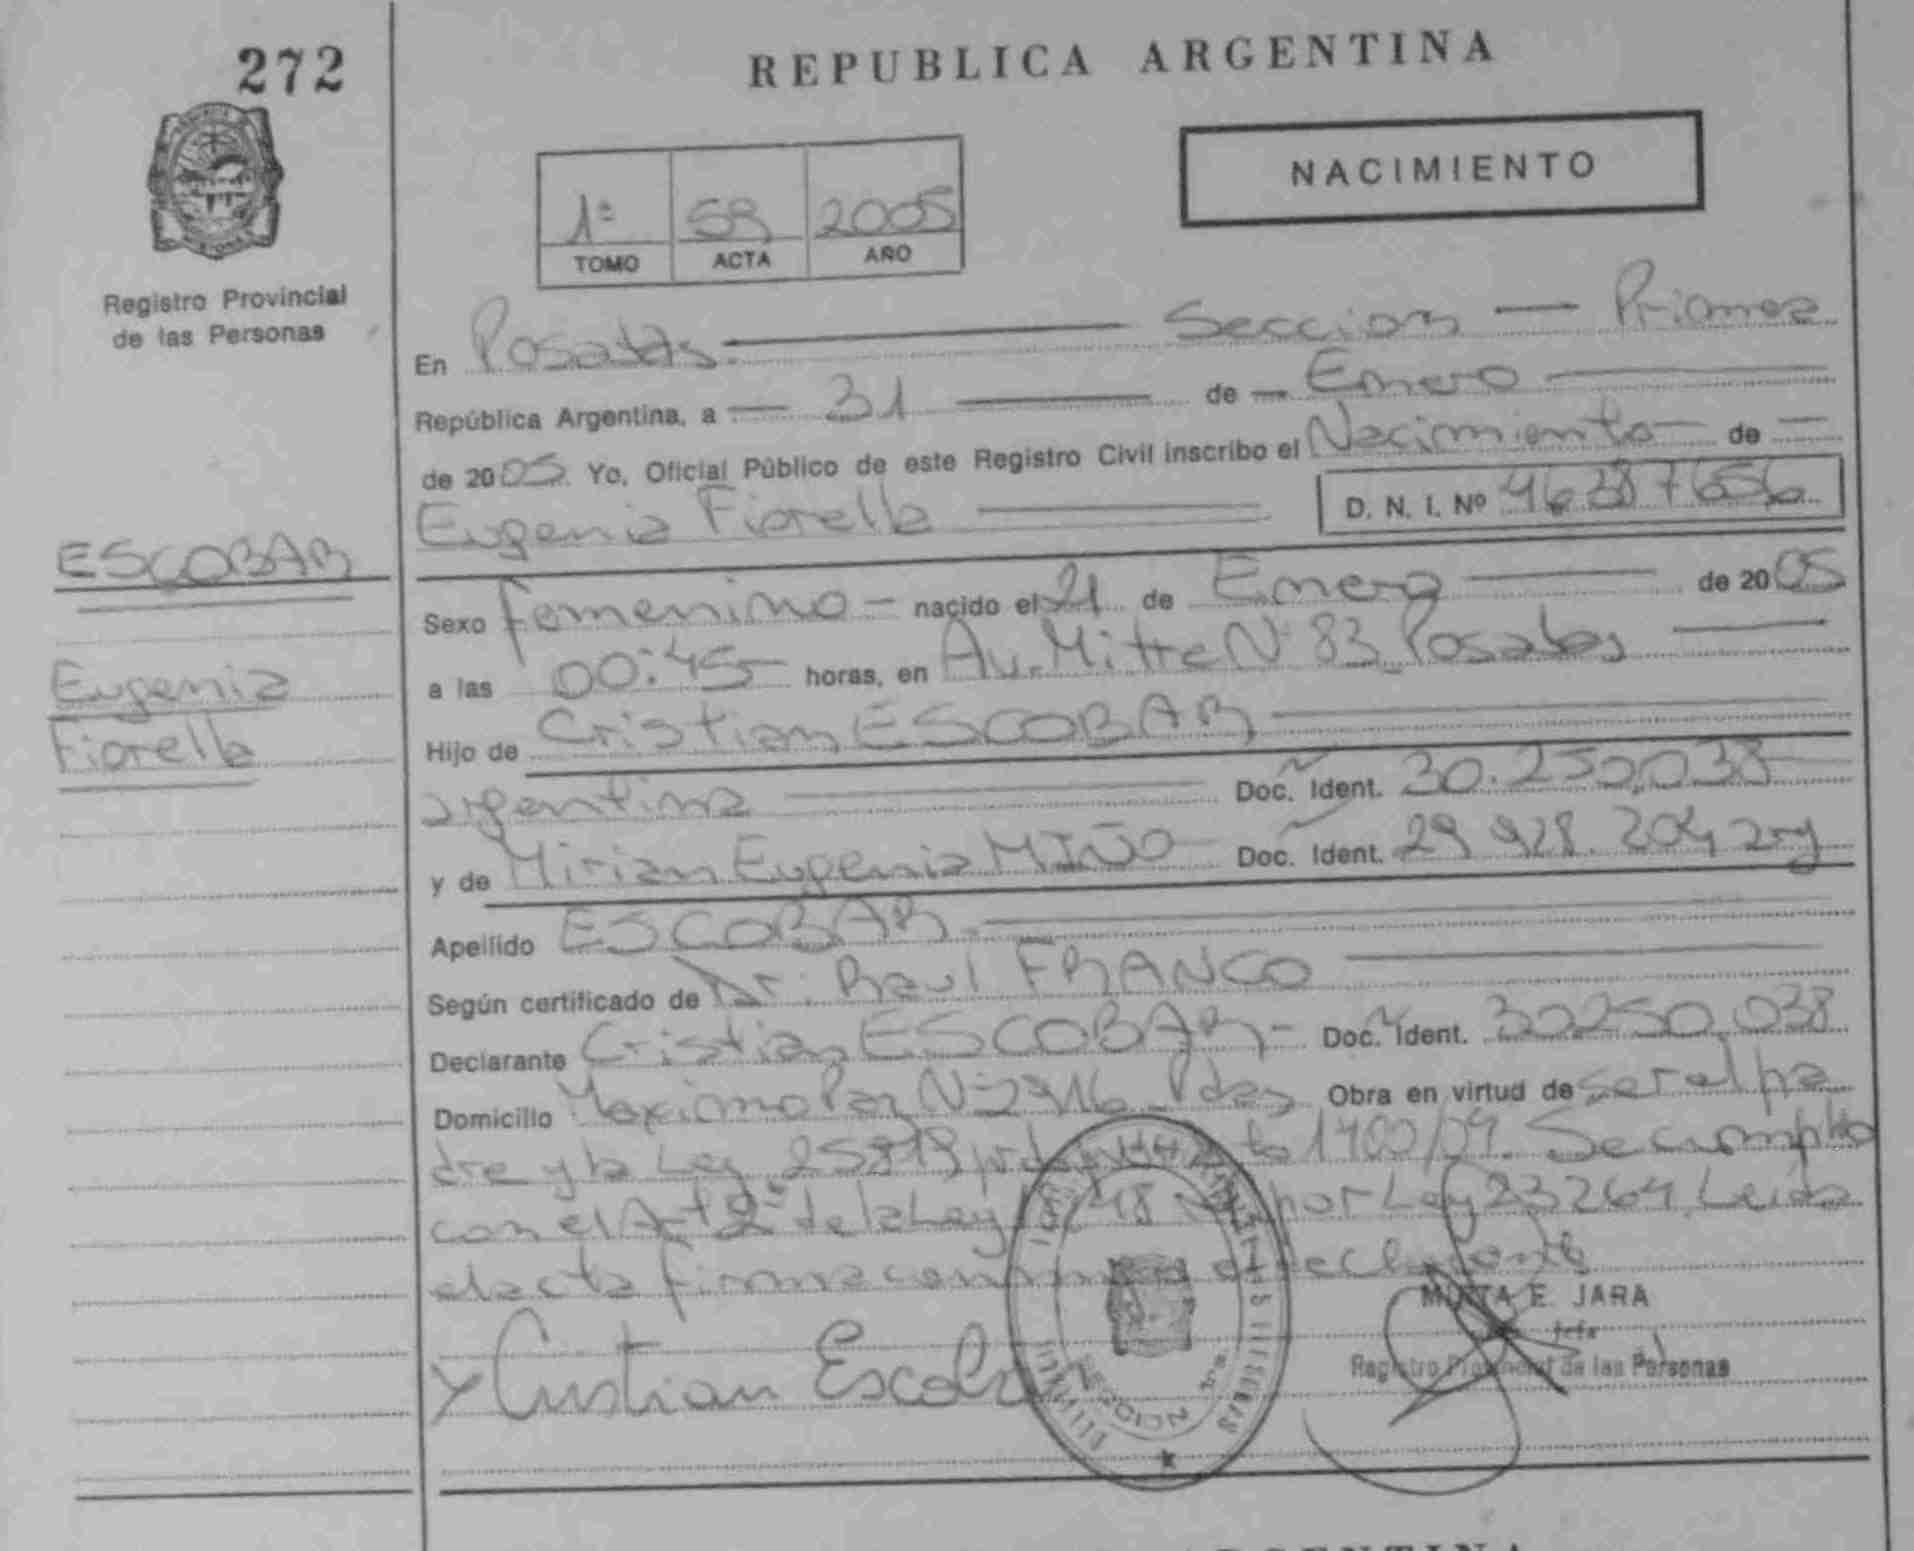 272
REPUBLICA ARGENTINA
NACIMIENTO
1ª 59 2005
TOMO ACTA AÑO
Registro Provincial
de las Personas
En Posadas. Seccion Primera
República Argentina, a 31 de Enero
de 2005. Yo, Oficial Público de este Registro Civil inscribo el Nacimiento de
Eugenia Fiorella D. N. I. Nº 46387656
ESCOBAR
Eugenia
Fiorella
Sexo femenino nacido el 21 de Enero de 2005
a las 00:45 horas, en Av. Mitre Nº 83 Posadas
Hijo de Cristian ESCOBAR
argentina Doc. Ident. 30.250.038
y de Mirian Eugenia MIÑO Doc. Ident. 29 928.204 arg
Apellido ESCOBAR
Según certificado de Dr. Raul FRANCO
Declarante Cristian ESCOBAR Doc. Ident. 30250.038
Domicilio Maximo Paz Nº 2916 Pdas Obra en virtud de ser el pa
dre y la Ley 25819 1400/04. Se cumplio
con el Art 2º de la Ley por Ley 23264 Leida
el acta firma conmigo el declarante
Cristian Escobar
SECCION
MIRTA E. JARA
Jefa
Registro Provincial de las Personas